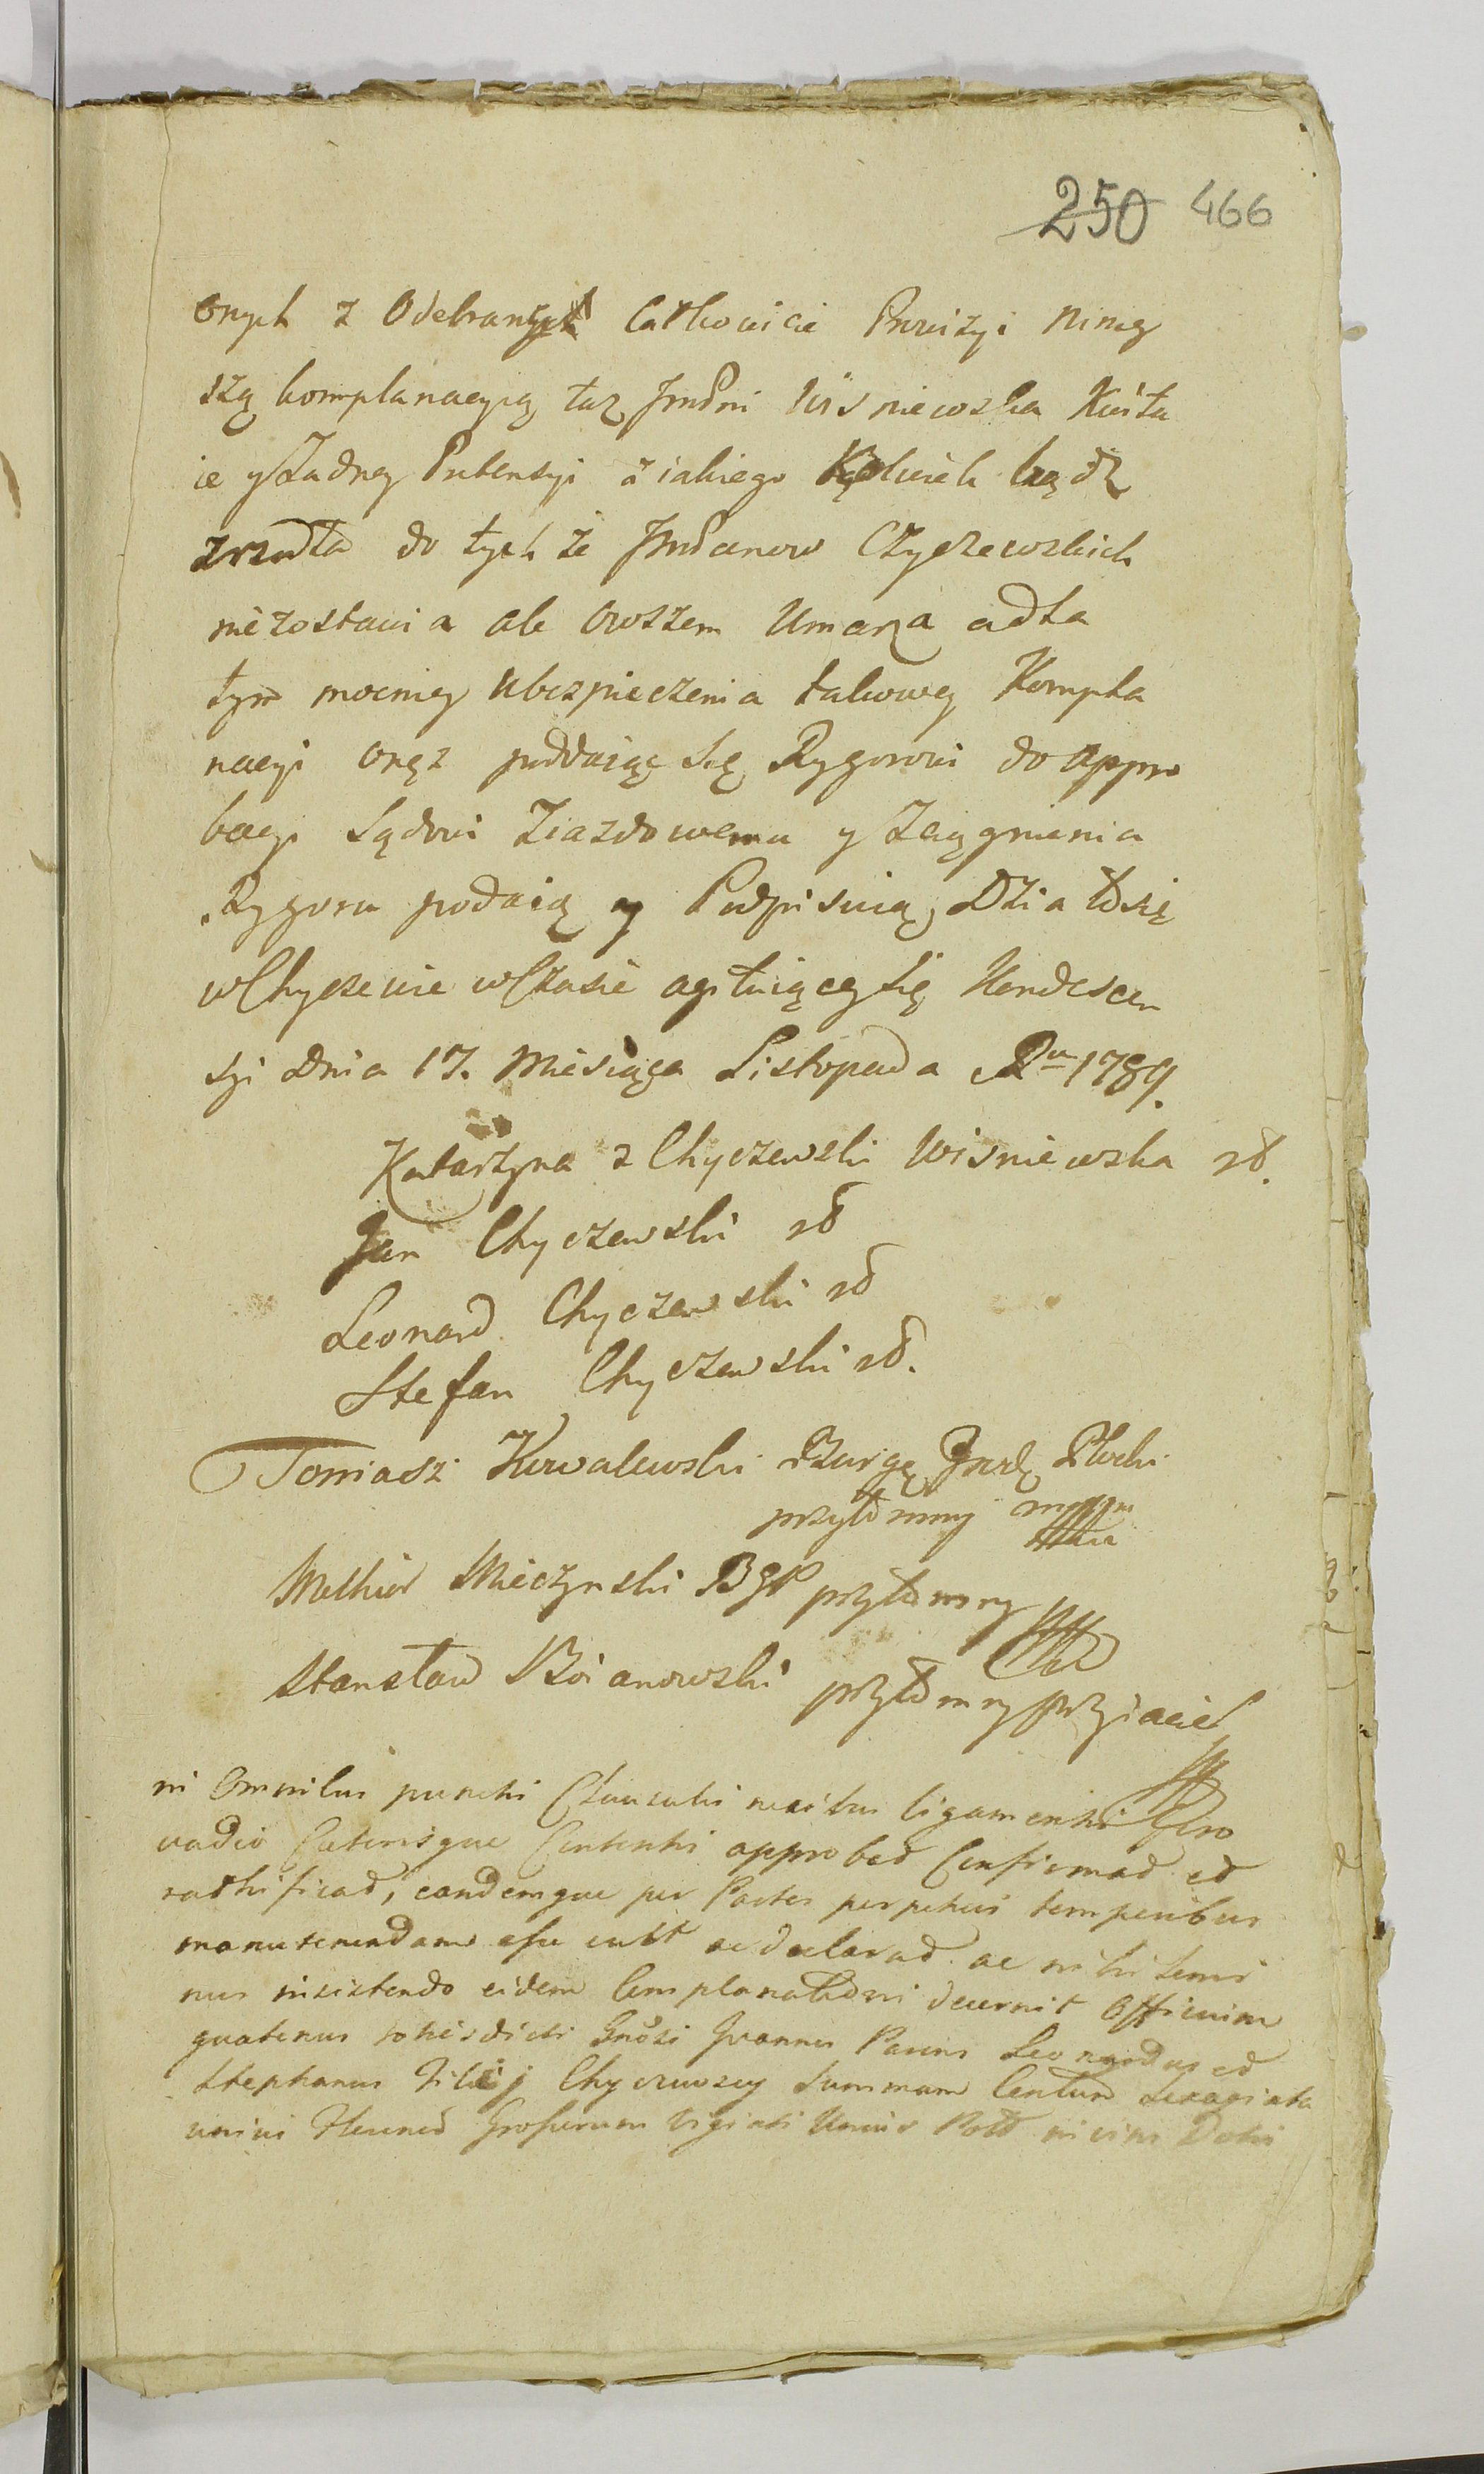 250 466
onych z Odebranych Całkowicie Prowizyi niniey
szą komplanacyią taż JmPni Wisniewska Kwitu
ie y Żadney Pretensyi z iakiego kolwiek bądz
zrzodła do tych że JmPanow Czyczewskich
niezostawia ale owszem Umarza a dla
tym mocniey Ubezpieczenia takowey Kompla
nacyi oraz poddaiąc się Rygorowi do appro
bacyi Sądowi Ziazdowemu y Zciągnienia
Rygoru podaią y Podpisuią, Działo się
w Chyczewie w Czasie agituiącey się Kondescen
syi Dnia 17. Miesiąca Listopada Ru 1789.
Katarzyna z Chyczewski Wisniewska
Jan Chyczewski
Leonard Chyczewski
Stefan Chyczewski
Tomasz Kowalewski Płocki
przytomny
Melkior Mieczynski BGP przytomny
Stanisław Boianowski przytomny przyiaciel
in Omnibus punctis Clausulis nexibus ligamentis
vadio Caeterisque Contentis approbat Confirmat et
rathificat, eandemque per Partes perpetuis temporibus
manutenendam esse vult ac declarat ac nihilomi
nus insistendo eidem Complanationi decernit Officium
quatenus toties dicti Gnosi Joannes Parens Leonardus et
Stephanus Filii Chyczewscy Summam Centum Sexaginta
unius Floren Grossorum Viginti Unius Poll in vim Dotis